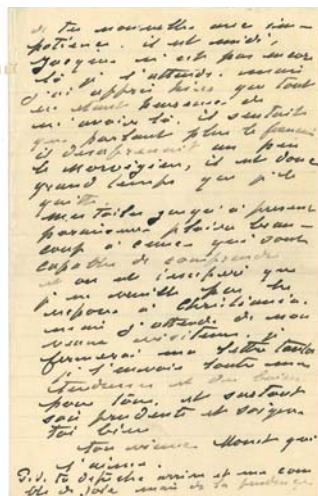 de tes nouvelles avec im-
patience. il est midi,
Jacques n'est pas encore
là je l'attends. mais
j'ai appris hier que tout
en étant heureuse de
m'avoir là, il sentait
que parlant plus le français
il désapprenait un peu
le Norvégien, il est donc
grand temps que je le
quitte.
mes toiles jusqu'à présent
paraissent plaire beau-
coup à ceux qui sont
capables de comprendre
et on est que
je ne veuille pas les
exposer à Christiania.
mais j'attends de
visiteurs. je
fermerai ma lettre tantôt
je t'envoie toute ma
tendresse et des
pour tous, et surtout
sois prudente et soigne
toi bien
ton vieux Monet qui
t'aime.
P.S. ta dépêche arrive et me com-
ble de joie mais de la prudence